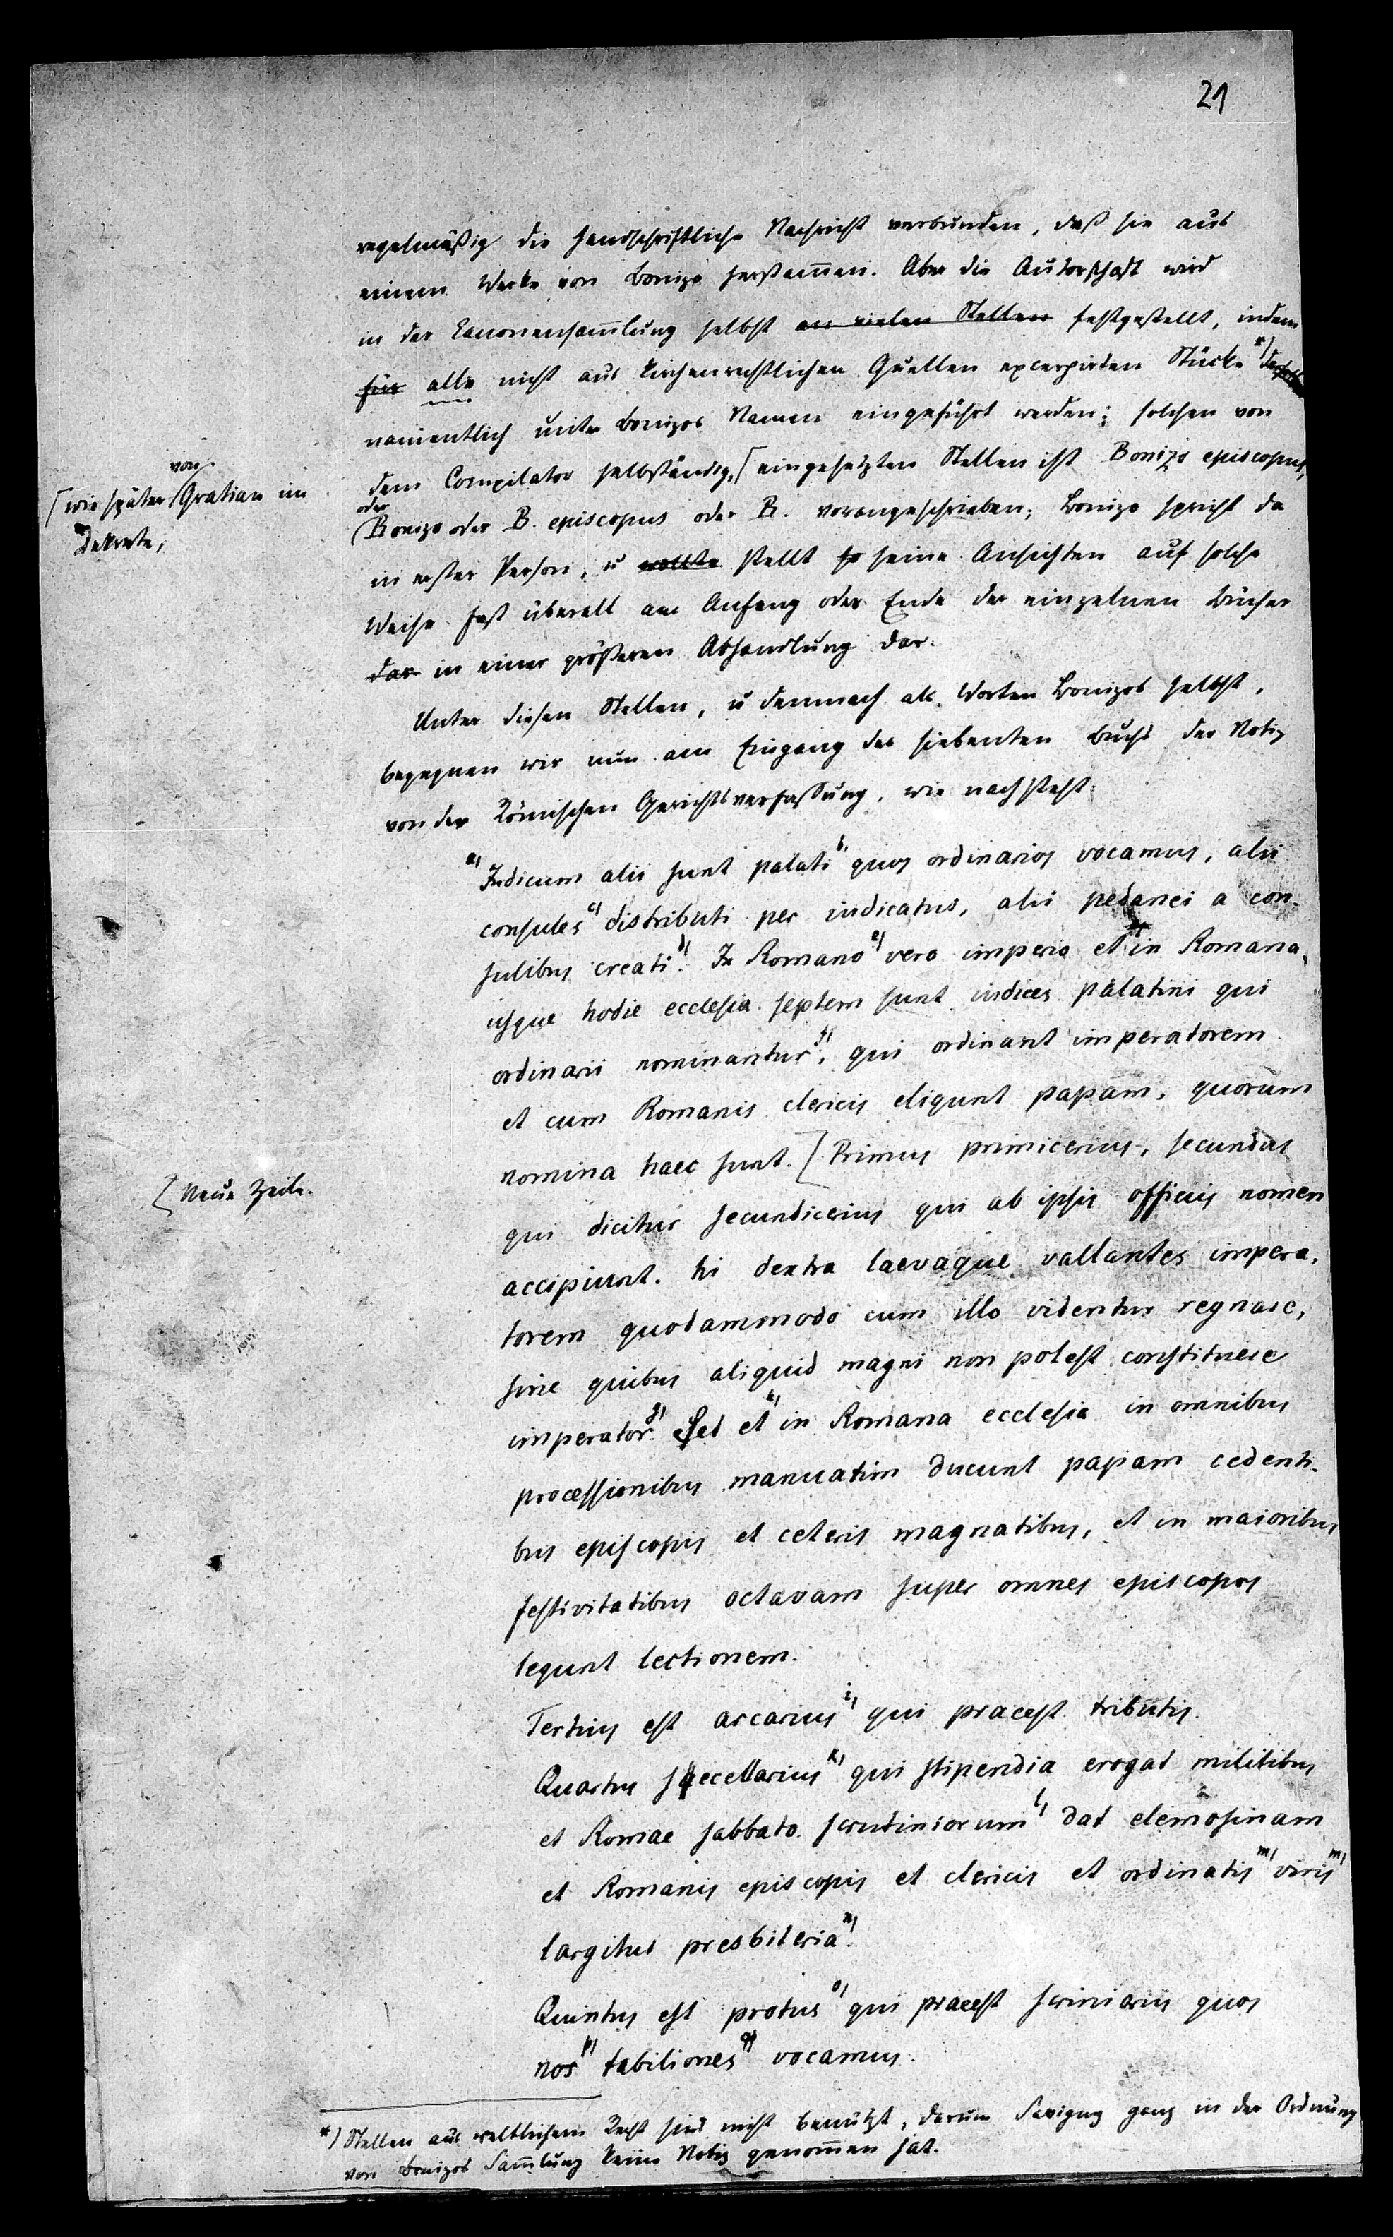 21
regelmäßig die handschriftliche Nachricht verbunden, daß sie aus
einem Werke von Bonizo herstam̄en. Aber die Autorschaft wird
in der Canonensam̄lung selbst an vielen Stellen festgestellt, indem
für alle nicht aus kirchenrechtlichen Quellen excerpirten Stücke *)
namentlich unter Bonizos Namen eingeführt werden; solchen von
dem Compilator selbständig, [ eingesetzten Stellen ist Bonizo episcopus,
[ wie später von Gratian im
Dekrete,
oder
Bonizo oder B. episcopus oder B. vorangeschrieben; Bonizo spricht da
in erster Person, u wollte stellt so seine Ansichten auf solche
Weise fast überall am Anfang oder Ende der einzelnen Bücher
dar in einer größeren Abhandlung dar.
Unter diesen Stellen, u demnach als Worten Bonizos selbst,
begegnen wir nun am Eingang des siebenten Buchs der Notiz
von der Römischen Gerichtsverfassung, wie nachsteht:
a) Iudicum alii sunt palati b) quos ordinarios vocamus, alii
consules c) distributi per iudicatus, alii pedanei a con-
sulibus creati d). In Romano e) vero imperio et in Romana
usque hodie ecclesia septem sunt iudices palatini qui
ordinarii nominantur f), qui ordinant imperatorem
et cum Romanis clericis eligunt papam, quorum
nomina haec sunt. [ Primus primicerius, secundus
[ Neue Zeile.
qui dicitur secundicerius qui ab ipsis officiis nomen
accipiunt. hi dextra laevaque vallantes impera-
torem quodammodo cum illo videntur regnare,
sine quibus aliquid magni non potest constituere
imperator g). Sed et h) in Romana ecclesia in omnibus
processionibus manuatim ducunt papam cedenti-
bus episcopis et ceteris magnatibus, et in maioribus
festivitatibus octavam super omnes episcopos
legunt lectionem.
Tertius est arcarius i) qui praeest tributis.
Quartus saccellarius k) qui stipendia erogat militibus
et Romae sabbato scrutiniorum l) dat elemosinam
et Romanis episcopis et clericis et ordinatis m) viris m)
largitur presbiteria n).
Quintus est protus o) qui praeest scriniariis quos
nos p) tabiliones q) vocamus.
*) Stellen aus weltlichem Recht sind nicht benützt, darum Savigny ganz in der Ordnung
von Bonizos Sam̄lung keine Notiz genom̄en hat.